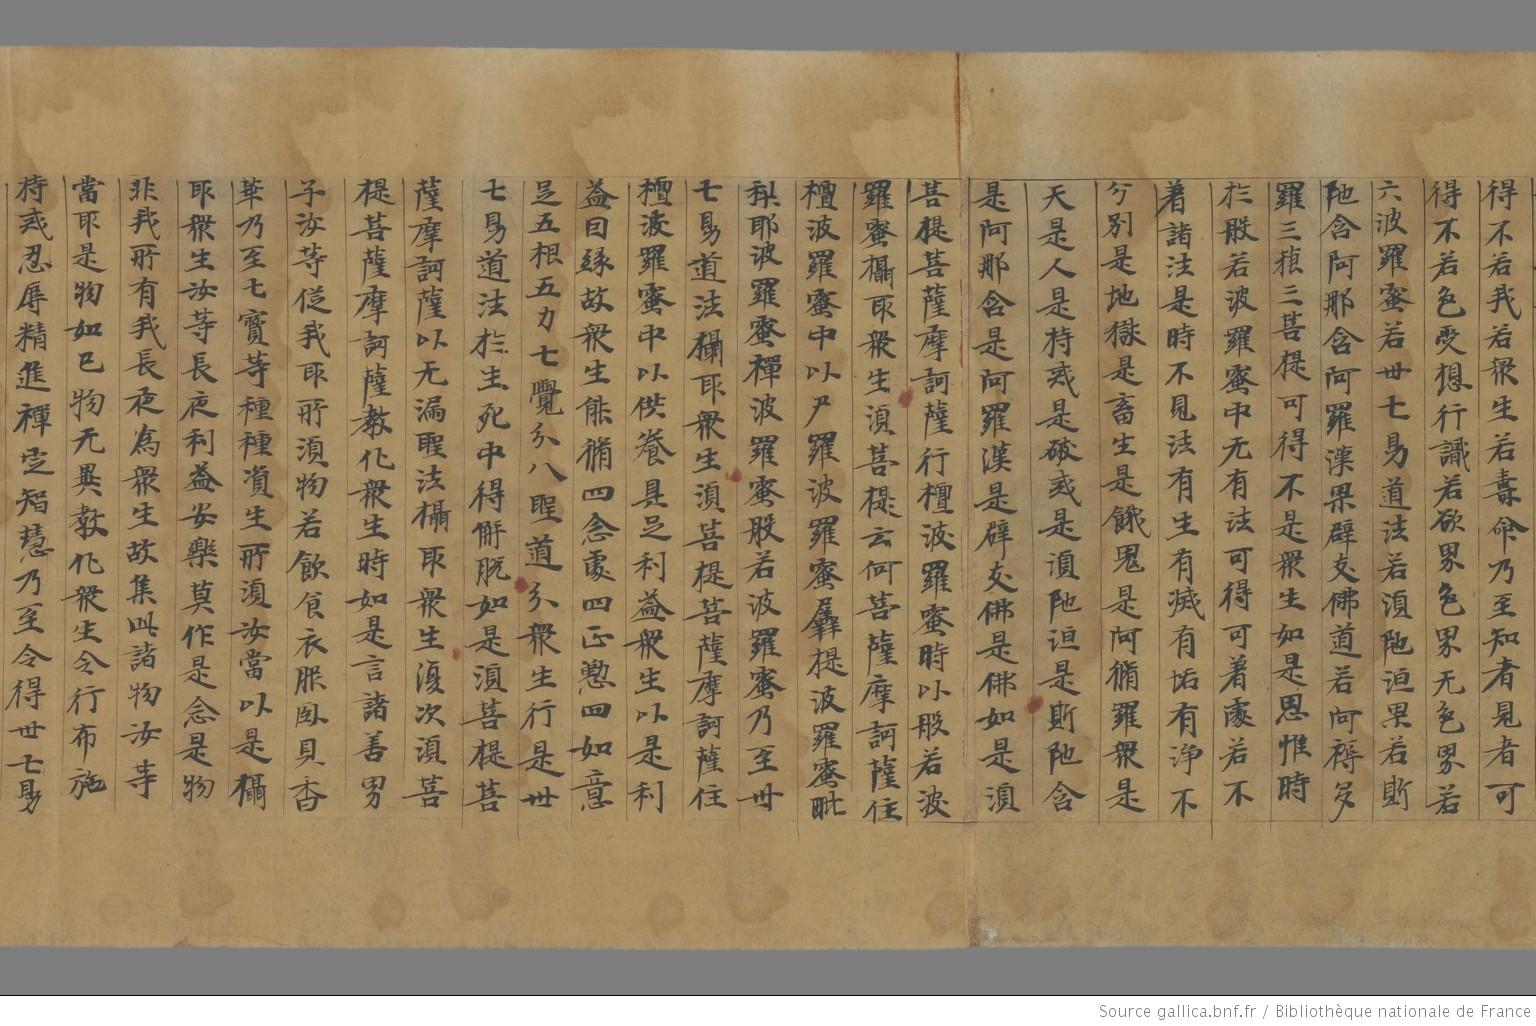 得不若我若衆生若壽命乃至知者見者可
得不若色受想行識若欲界色界无色界若
六波羅蜜若卅七易道法若湏陁洹果若斯
陁含阿那含阿羅漢果辟支佛道若阿耨多
羅三藐三菩提可得不是衆生如是思惟時
於般若波羅蜜中无有法可得可著處若不
著諸法是時不見法有生有滅有垢有淨不
分別是地獄是畜生是餓鬼是阿脩羅衆是
天是人是持戒是破戒是湏陁洹是斯陁含
是阿那含是阿羅漢是辟支佛是佛如是湏
菩提菩薩摩訶薩行檀波羅蜜時以般若波
羅蜜攝取衆生湏菩提云何菩薩摩訶薩住
檀波羅蜜中以尸羅波羅蜜羼提波羅蜜毗
梨耶波羅蜜禪波羅蜜般若波羅蜜乃至卅
七易道法攝取衆生湏菩提菩薩摩訶薩住
檀波羅蜜中以供養具足利益衆生以是利
益因緣故衆生能脩四念處四正懃四如意
足五根五力七覺分八聖道分衆生行是卅
七易道法於生死中得解脫如是湏菩提菩
薩摩訶薩以无漏聖法攝取衆生復次湏菩
提菩薩摩訶薩教化衆生時如是言諸善男
子汝等從我取所湏物若飲食衣服卧具香
華乃至七寶等種種資生所湏汝當以是攝
取衆生汝等長夜利益安樂莫作是念是物
非我所有我長夜為衆生故集此諸物汝等
當取是物如己物无異教化衆生令行布施
持戒忍辱精進禪定智慧乃至令得卅七易